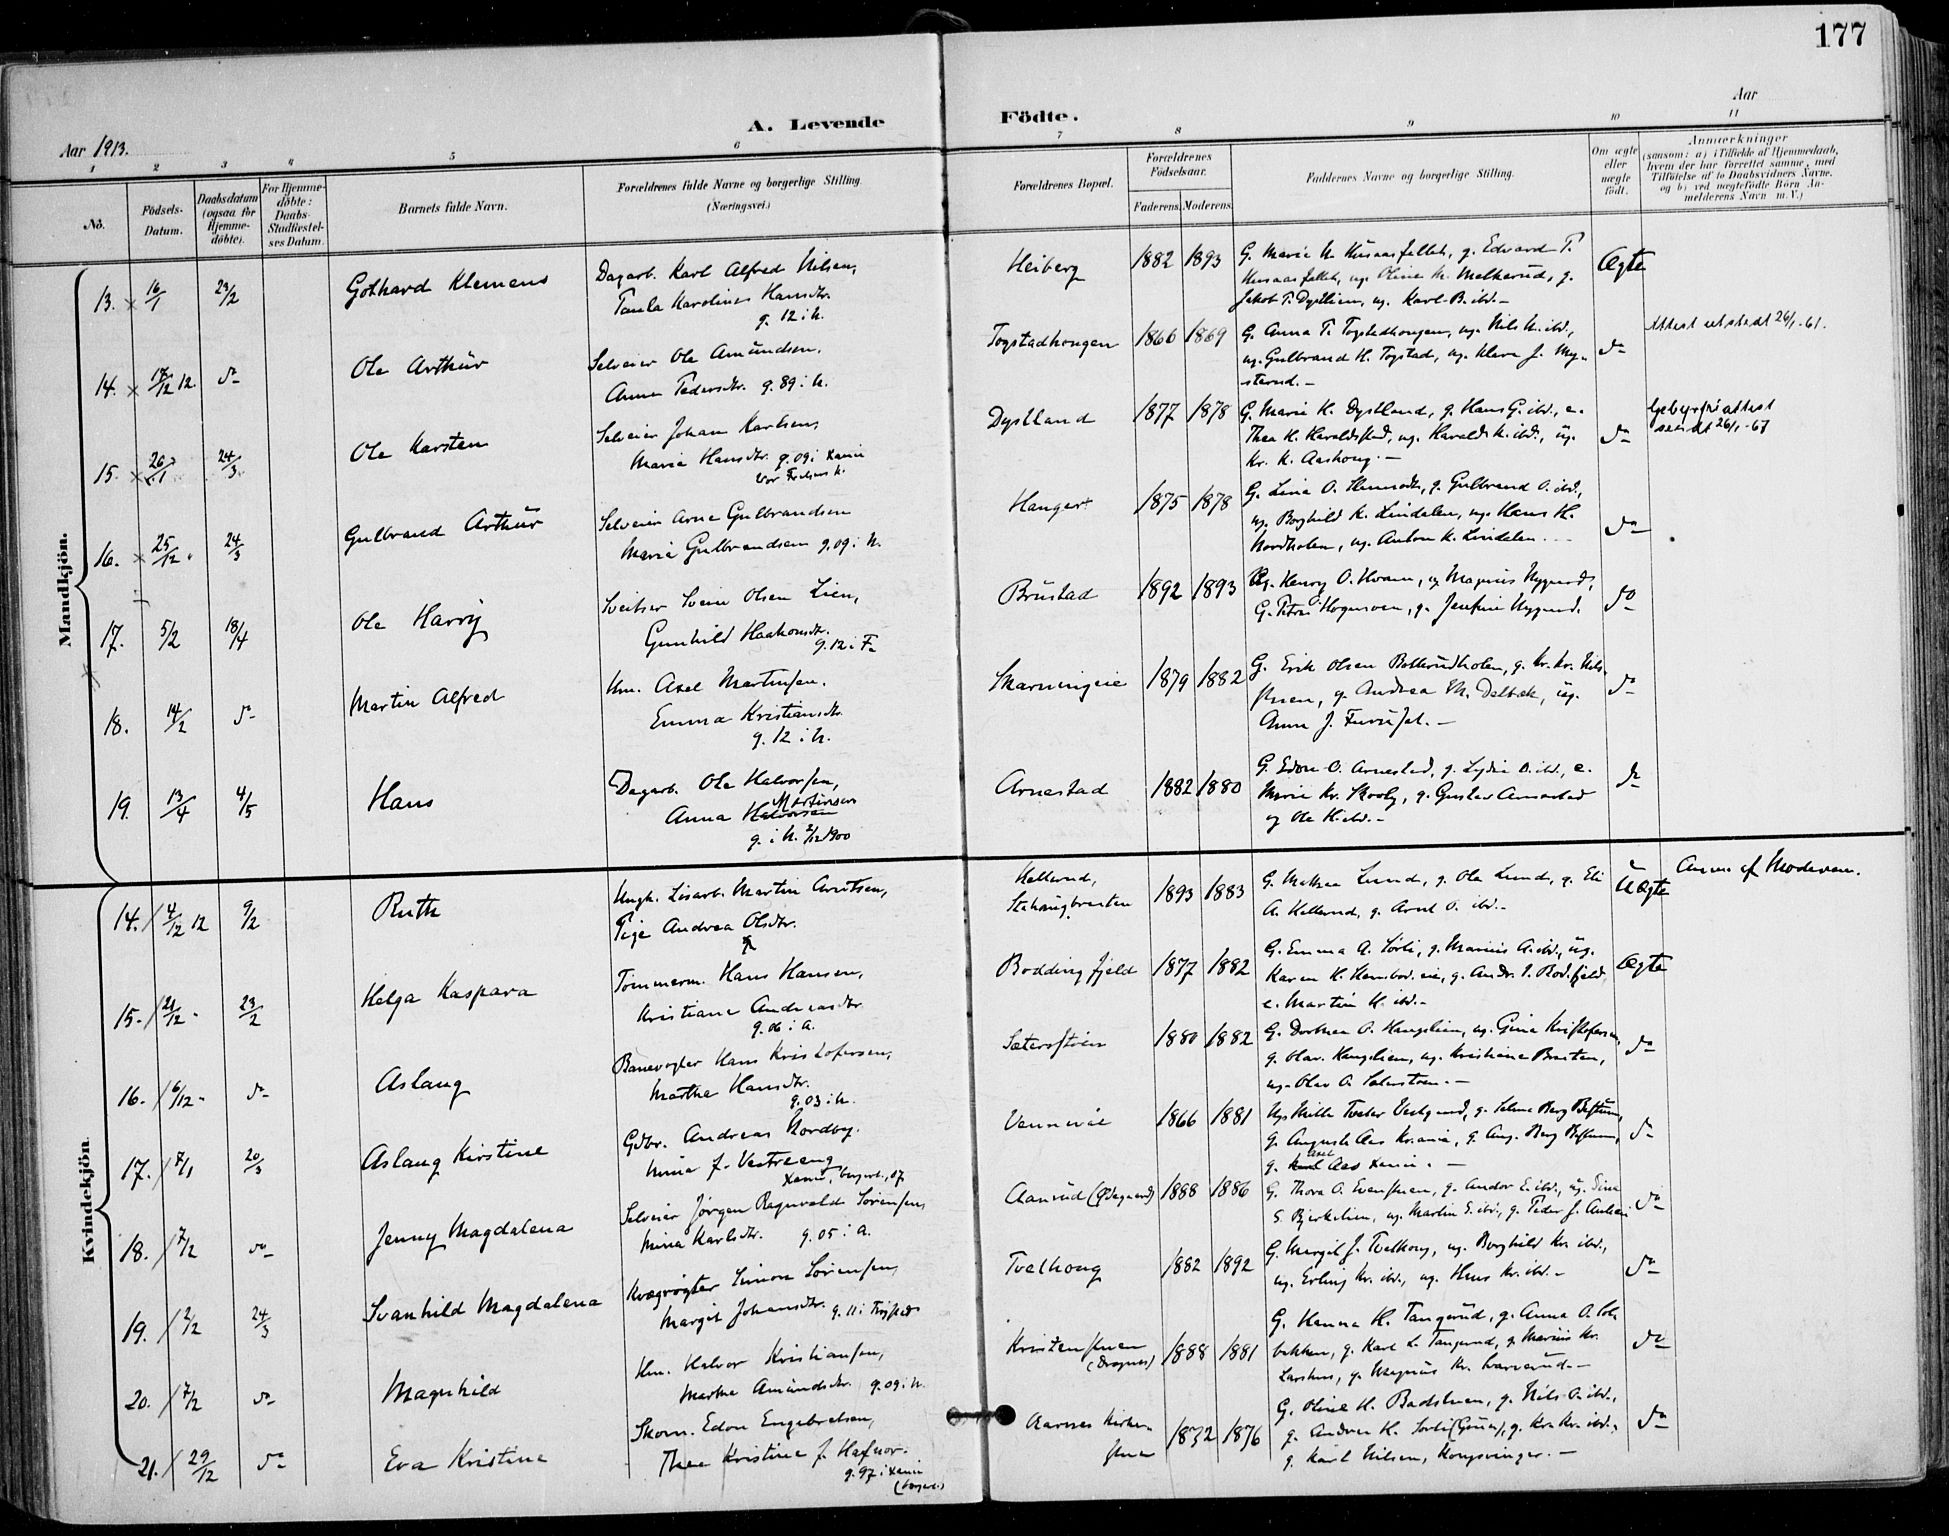 177
Aar 1913.
A. Levende
Födte.
Aar
1 2 3 4 5 6 7 8 9 10 11
No.
Födsels-Datum.
Daabsdatum (ogsaa for Hjemme-døbte).
For Hjemme-døbte: Daabs-Stadfæstel-ses Datum.
Barnets fulde Navn.
Forældrenes fulde Navne og borgerlige Stilling.
(Næringsvei.)
Forældrenes Bopæl.
Forældrenes Födselsaar.
Faderens. Moderens.
Faddernes Navne og borgerlig Stilling.
Om ægte eller uægte født.
Anmærkninger
(saasom: a) i Tilfælde af Hjemmedaab,
hvem der har forrettet samme, med
Tilföielse af to Daabsvidners Navne,
og b) ved uægtefödte Börn An-
melderens Navn m.V.)
Mandkjön.
13. × 16/1 23/2 Gothard Klemens
Dagarb. Karl Alfred Nilsen,
Paula Karoline Hansdtr.
g. 12 i N.
Heiberg 1882 1893
G. Marie N. g. Edvard T.
Jakob T. Dystlien, ug. Karl B. ibd.-
Ægte
14. × 17/12 12. do Ole Arthur
Selveier Ole Amundsen,
Anna Pedersdtr. g. 89 i N.
Togstadhougen 1866 1869
G. Anna T. Togstadhougen, ug. Nils N. ibd.,
ug. Gulbrand H. Togstad, ug. Klara J. My-
sterud.-
do
Attest utstedt 26/1-61.
15. × 26/1 24/3 Ole Karsten
Selveier Johan Karlsen,
Marie Hansdtr. g. 09 i Xania
Vor Frelsers k.
Dystland 1877 1878
G. Marie K. Dystland, g. Hans G. ibd., e.
Thea H. Haraldstad, ug. Harald K. ibd., ug.
Kr. K. Aashoug.-
do
Gebyrfri attest
sendt 26/1-67
16. × 25/12 " 24/3 Gulbrand Arthur
Selveier Arne Gulbrandsen
Marie Gulbrandsen g. 09 i N.
Hanger 1875 1878
G. Lina O. g. Gulbrand O. ibd.,
ug. Borghild K. Lindalen, ug. Hans H.
Nordholen, ug. Anton K. Lindalen.-
do
17. 5/2 18/4 Ole Harry
Sveitser Svein Olsen Lien,
Gunhild Haakonsdtr.
g. 12 i F.
Brustad 1892 1893
Ug. Henry O. Hvam, ug Magnus Nygaard,
G. Petra Hogensen, g. Josefine Nygaard.
do
18. 14/2 do Martin Alfred
Hm. Axel Martinsen.
Emma Kristiansdtr.
g. 12 i N.
Skarningeie 1879 1882
G. Erik Olsen Bollerudholen, g. Kr. Kr. Nils-
stuen, g. Andrea M. Delbek, ug.
Anna J. Furuset.-
do
19. 13/4 4/5 Hans
Dagarb. Ole Halvorsen,
Martinsen
Anna Halvorsen
g. i N. 2/12 1900
Arnestad 1882 1880
G. Edon O. Arnestad, g. Lydia O. ibd., e.
Marie Kr. Skoley, g. Gustav Arnestad
og Ole H. ibd.-
do
Kvindekjön.
14. / 4/12 12 9/2 Ruth
Ungk. Løsarb. Martin Arntsen,
Pige Andrea Olsdtr.
Hellerud,
Stahaugbraaten 1893 1883
G. Mathea Lund, g. Ole Lund, g. Eli
A. Hellerud, g. Arnt O. ibd.-
Uægte
Anm. af Moderen.
15. / 21/12 " 23/2 Helga Kaspara
Tømmerm. Hans Hansen,
Kristiane Andreasdtr
g. 06 i A.
Boddingfjeld 1877 1882
G. Emma A. Sørli, g. Marius A. ibd., ug.
Karen K. eie, g. Andr. I. Bod.fjeld,
e. Martin H. ibd.-
Ægte
16. / 6/12 " do Aslaug
Banevogter Hans Kristofersen,
Martha Hansdtr.
g. 03 i N.
Sæterstøen 1880 1882
G. Dorthea O. Hauglien, ug. Gina Kristofersen,
g. Olav Hauglien, ug. Kristiane Braaten,
ug. Olav O. Sæterstøen.-
do
17. / 7/1 20/3 Aslaug Kirstine
Gdbr. Andreas Nordby.
Mina J. Vestreeng
Xania, borgerl., 07
Vennevoie 1866 1881
Ug. Milla Tveter Vestgaard, g. Selma Berg Bestum,
g. Augusta Aas Kr.ania, g. Aug. Berg Bestum,
g. Axel Aas Xania.-
do
18. / 7/2 do Jenny Magdalena
Selveier Jørgen Ragnvald Sørensen,
Mina Karlsdtr. g. 05 i A.
Aanrud (Ødegaard) 1888 1886
G. Thora O. Evenstuen, g. Andor E. ibd., ug. Gina
S. Bjerkelien, ug. Martin S. ibd., g. Peder J.
do
19. / 2/2 24/3 Svanhild Magdalena
Kvægrøgter Simon Sørensen,
Margit Johansdtr. g. 11 i Trøgstad
Tvethoug 1882 1892
G. Margit J. Tvethoug, ug. Borghild Kr. ibd.,
ug. Erling Kr. ibd., ug. Hans Kr. ibd.-
do
20. / 7/2 do Magnhild
Hm. Halvor Kristiansen,
Marthe Amundsdtr. g. 09 i N.
Kristenstuen
(Dragnes) 1888 1881
G. Hanna H. Tangerud, g. Anna O. Sol-
bakken, g. Karl L. Tangerud, g. Marius Kr.
Larshus, g. Magnus Kr.
do
21. / 29/12 do Eva Kristine
Skom. Edon Engebretsen,
Thea Kristine J. Hafnor.
g. 97 i Xania
(borgerl.)
Aarnes Kirke-
stue 1872 1876
G. Oline H. Badstuen, g. Nils O. ibd.,
g. Andrea H. Sorli (Grue), g. Kr. Kr. ibd.,
g. Karl Nilsen, Kongsvinger.-
do